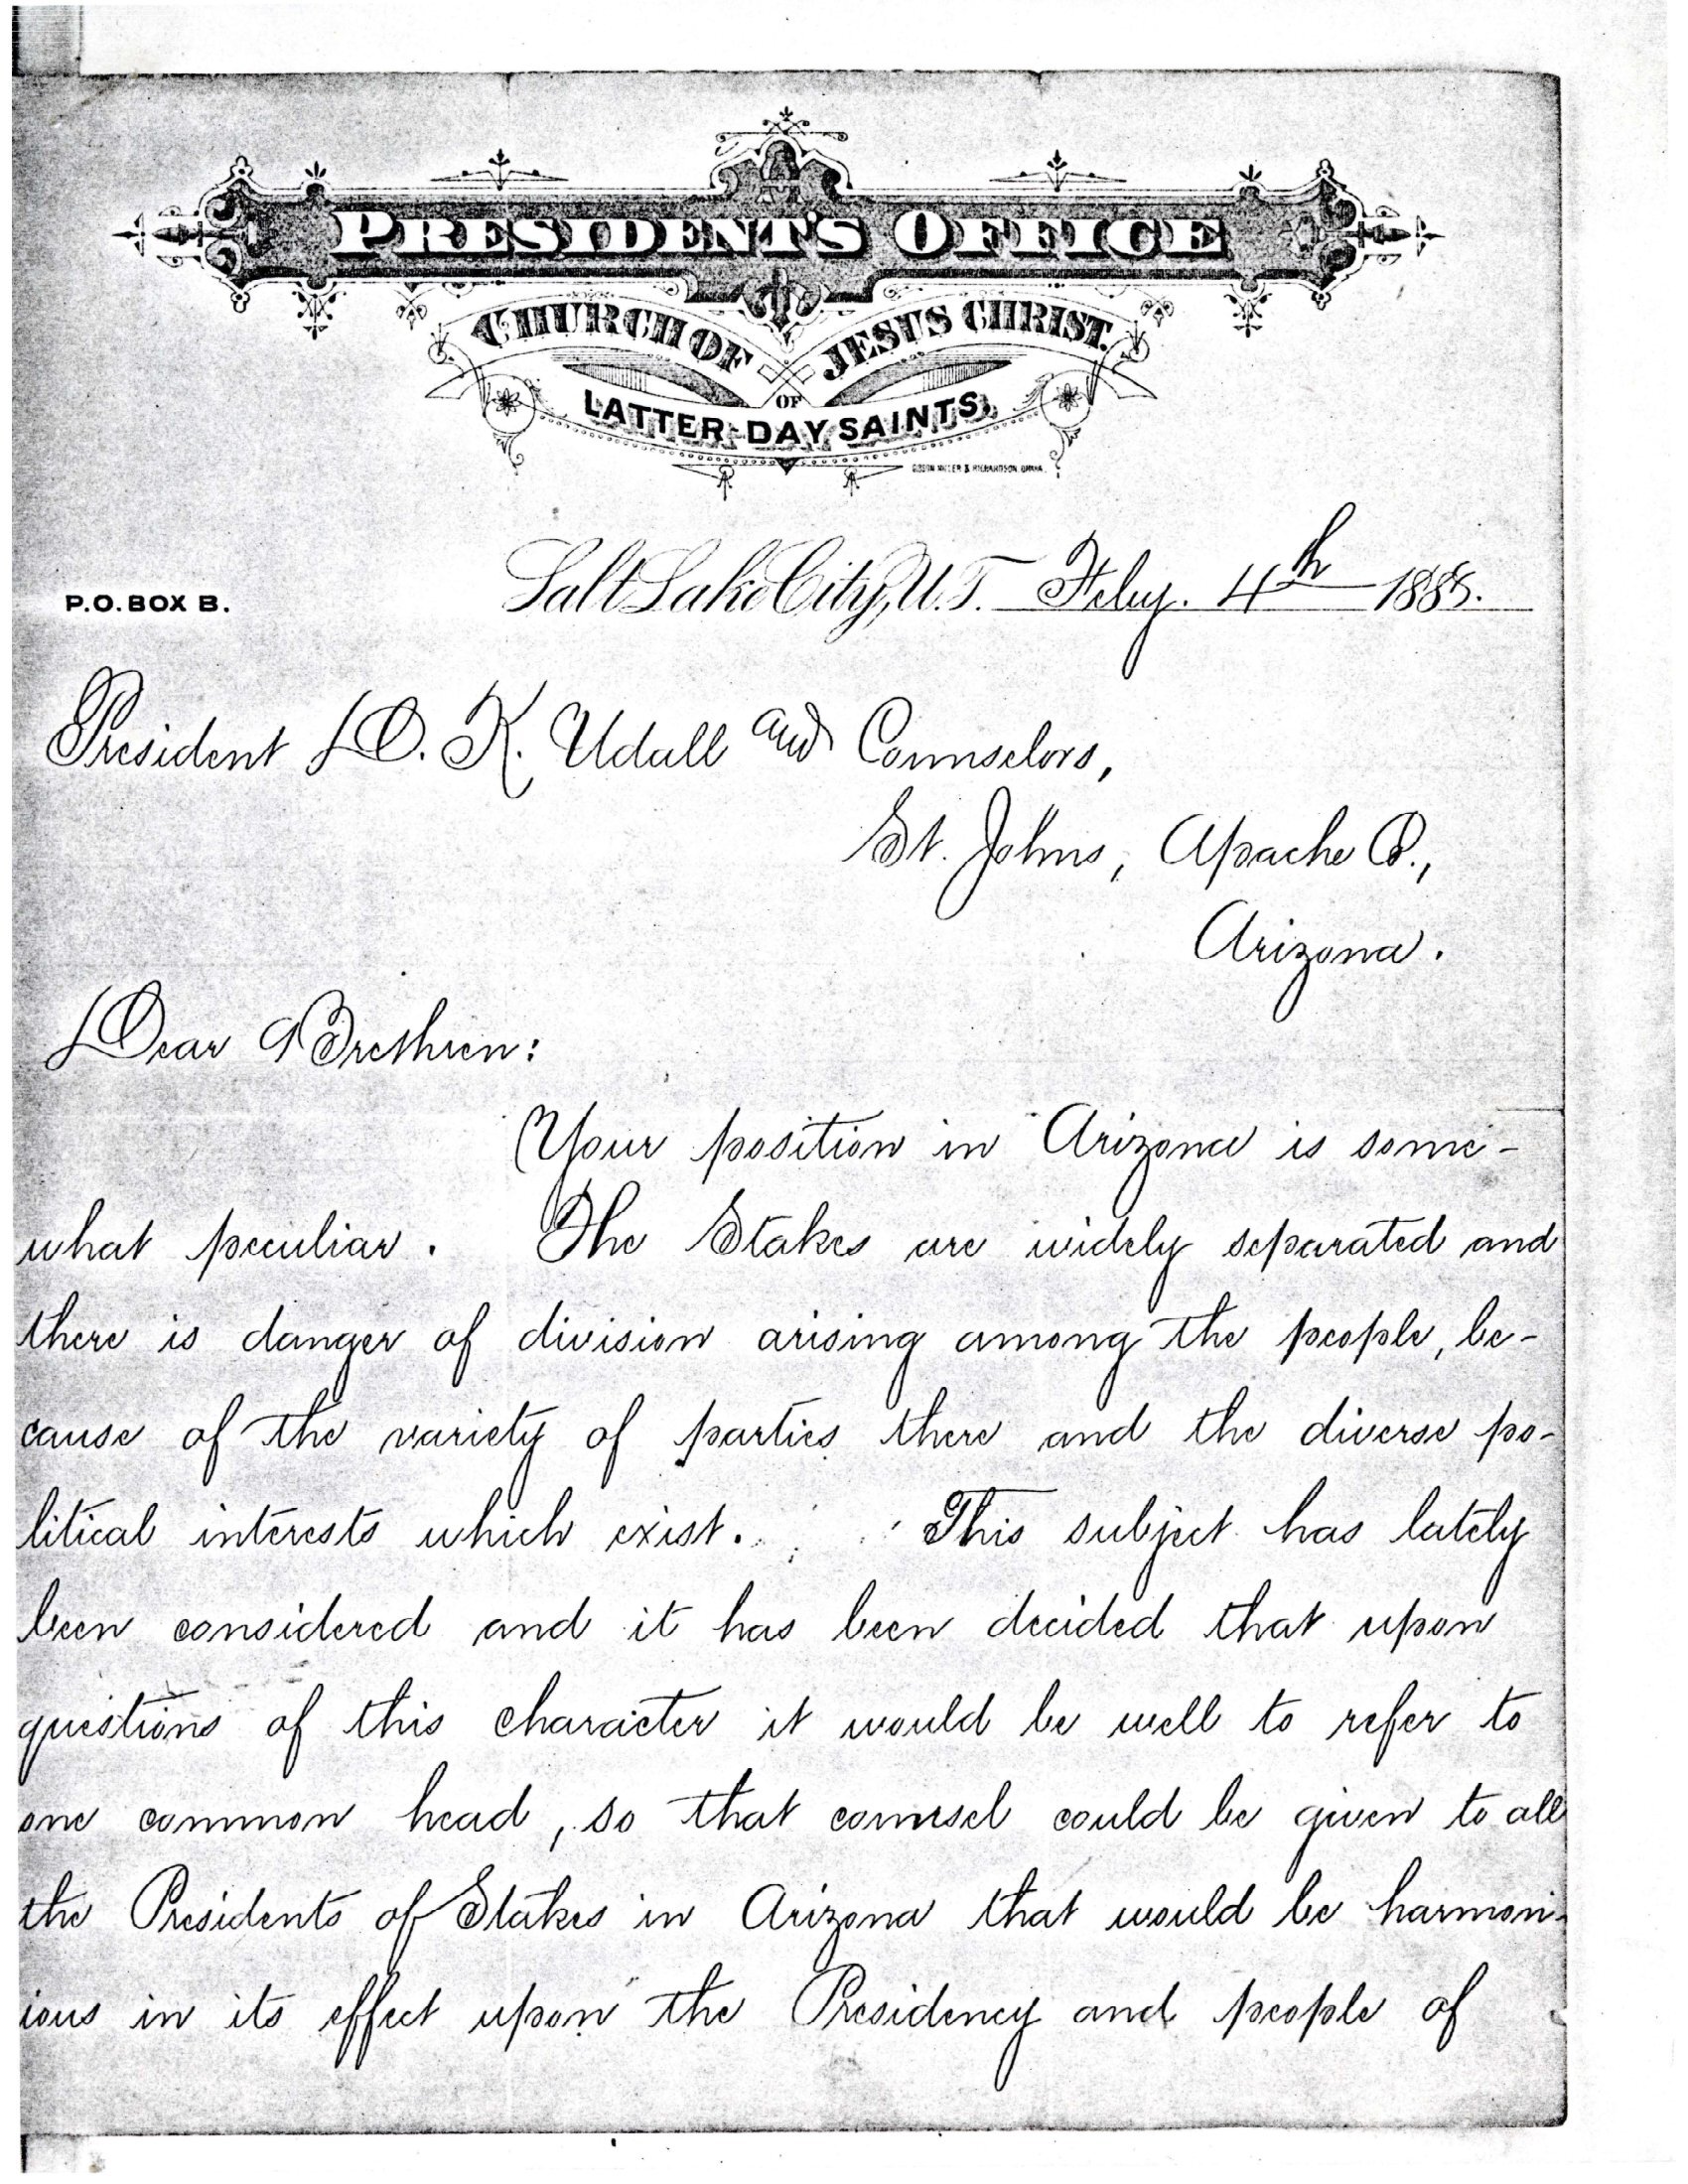 PRESIDENT'S OFFICE
CHURCH OF JESUS CHRIST.
OF
LATTER-DAY SAINTS.
P.O. BOX B.
Salt Lake City, U.T. Feby. 4th 1885.
President D. K. Udall and Counselors,
St. Johns, Apache Co.,
Arizona.
Dear Brethren:
Your position in Arizona is some-
what peculiar. The Stakes are widely separated and
there is danger of division arising among the people, be-
cause of the variety of parties there and the diverse po-
litical interests which exist. This subject has lately
been considered and it has been decided that upon
questions of this character it would be well to refer to
one common head, so that counsel could be given to all
the Presidents of Stakes in Arizona that would be harmon-
ious in its effect upon the Presidency and people of